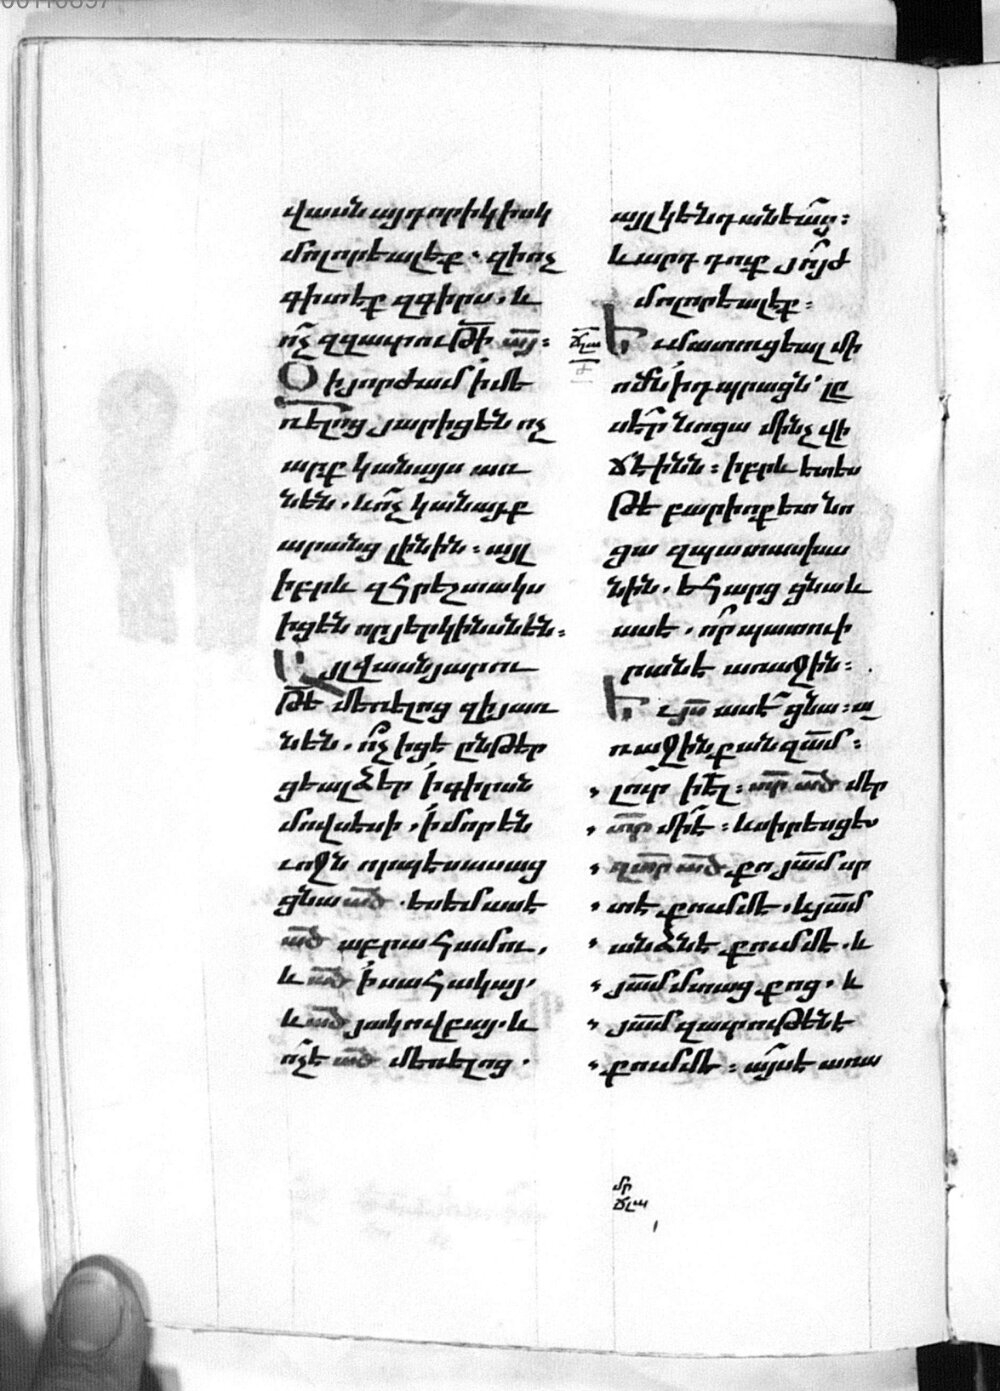 վասն այդորիկ իսկ
մոլորեալ էք. զի ոչ
գիտէք զգիրս, և
ո՛չ զզաւրութի ա՟յ։
Օի յորժամ ի մե
ռելոց յարիցեն ոչ
արք կանայս առ
նեն, և ոչ կանայք
արանց լինին։ այլ
իբրև զհրեշտակս
իցեն որ յերկինսն են։
Այլ վասն յարու
թե մեռելոց զի յառ
նեն, ո՛չ իցէ ընթեր
ցեալ ձեր ի գիրսն
մովսեսի, ի մորեն
ւոջն որպէս ասաց
ցնա ա՟ծ. ես եմ ասէ
ա՟ծ աբրահամու,
և ա՟ծ իսահակայ,
և ա՟ծ յակովբայ. և
ո՛չ է ա՟ծ մեռելոց.
այլ կենդանեաց։
և արդ դուք յոյժ
մոլորեալ էք։
ճլա
Եւ մատուցեալ մի
ոմն ի դպրացն՝ լը
սեր նոցա մինչ վի
ճէինն։ իբրև ետես
թե բարիոք ետ նո
ցա զպատասխա
նին. եհարց ցնա և
ասէ, ո՛ր պատուի
րան է առաջին։
Եւ յ՟ս ասէ ցնա։ ա
ռաջին քան զա՟մ։
լուր ի՟էլ։ տ՟ր ա՟ծ մեր
տ՟ր մի է։ և սիրեսցես
զտ՟ր ա՟ծ քո յա՟մ սր
տէ քումմէ, և յա՟մ
անձնէ քումմէ. և
յա՟մ մտաց քոց. և
յա՟մ զաւրութենէ
քումմէ։ ա՛յս է առա
մր
ճլա